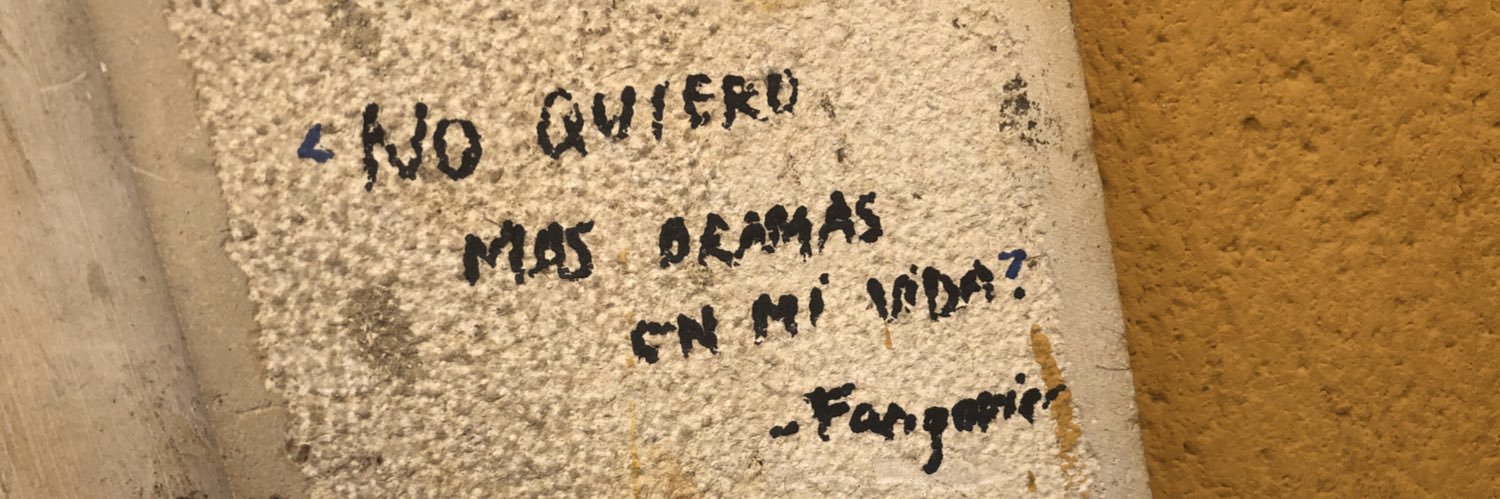 "NO QUIERO
MAS DRAMAS
EN MI VIDA".
- Fangoria